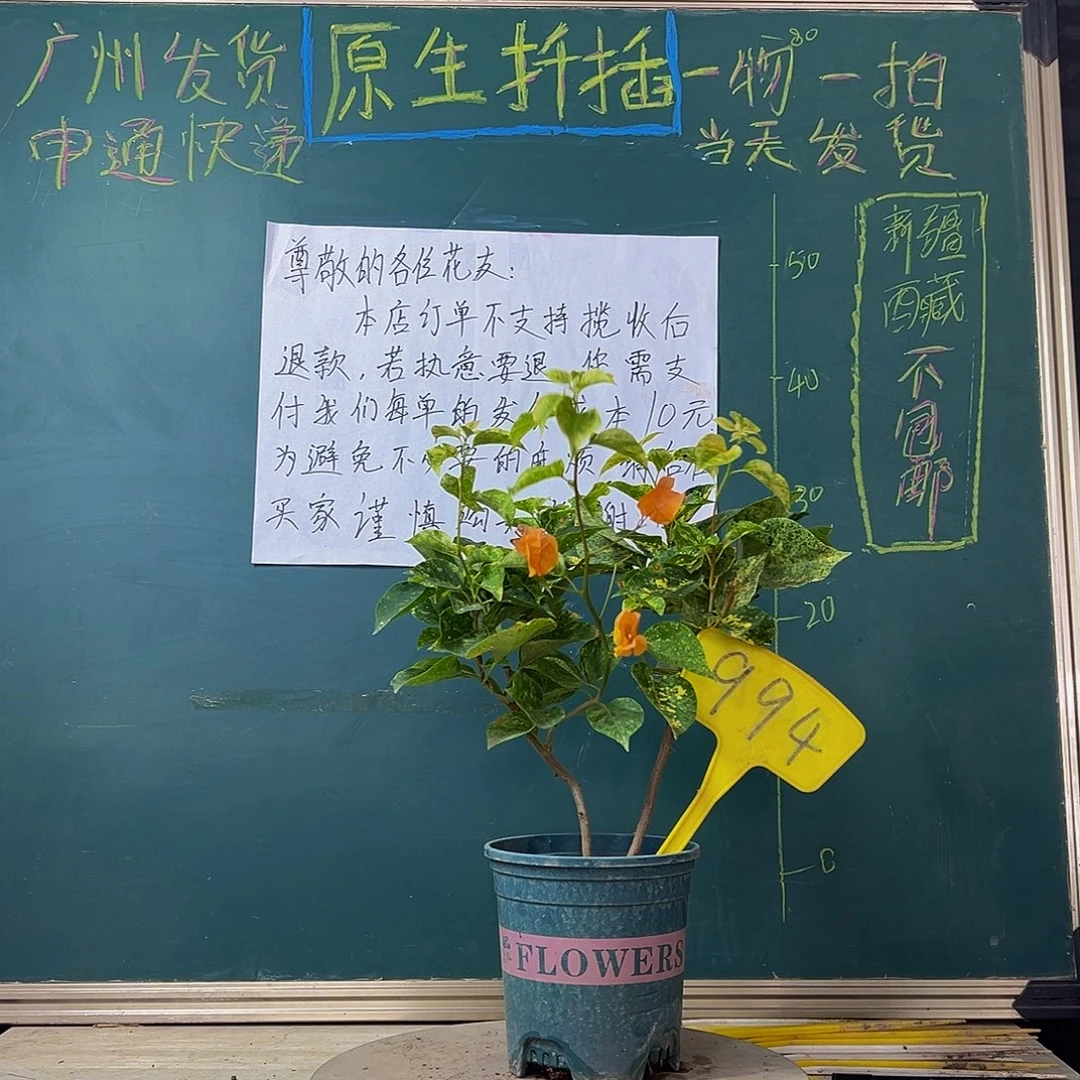 广州发货
原生扦插
一物一拍
申通快递
当天发货
新疆
西藏
不
包
邮
尊敬的各位花友:
本店订单不支持揽收后
退款,若执意要退 你需支
付我们每单的发 本10元
为避免不必要的麻烦
买家谨慎 谢
80
50
40
30
20
0
994
FLOWERS